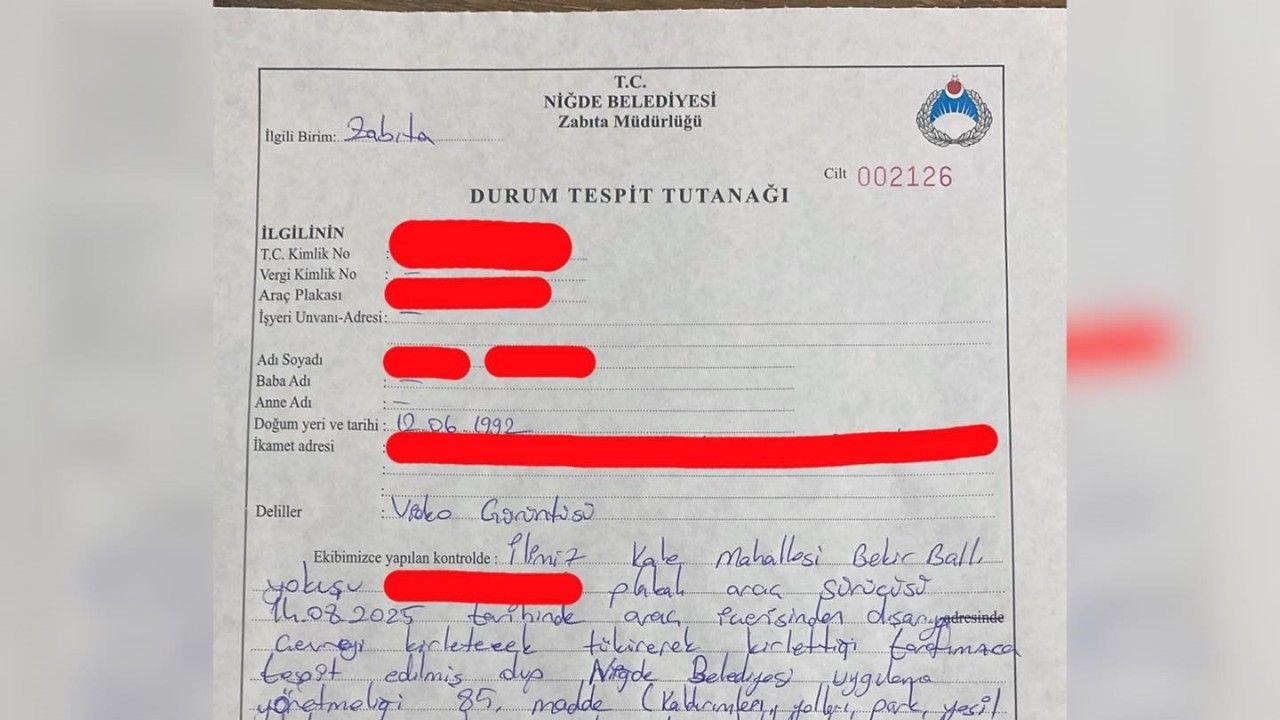 T.C.
NİĞDE BELEDİYESİ
Zabıta Müdürlüğü
İlgili Birim: Zabıta
Cilt 002126
DURUM TESPİT TUTANAĞI
İLGİLİNİN
T.C. Kimlik No :
Vergi Kimlik No : —
Araç Plakası
İşyeri Unvanı-Adresi : —
Adı Soyadı
Baba Adı : —
Anne Adı : —
Doğum yeri ve tarihi : 12.06.1992
İkamet adresi
Deliller : Video Görüntüsü
Ekibimizce yapılan kontrolde : İlimiz Kale Mahallesi Bekir Ballı
yokuşu plakalı araç sürücüsü
14.08.2025 tarihinde araç içerisinden dışarıya adresinde
Çevreyi kirletecek tükürerek kirlettiği tarafımızca
tespit edilmiş olup Niğde Belediyesi uygulama
yönetmeliği 85. madde (Kaldırımları, yolları, park, yeşil